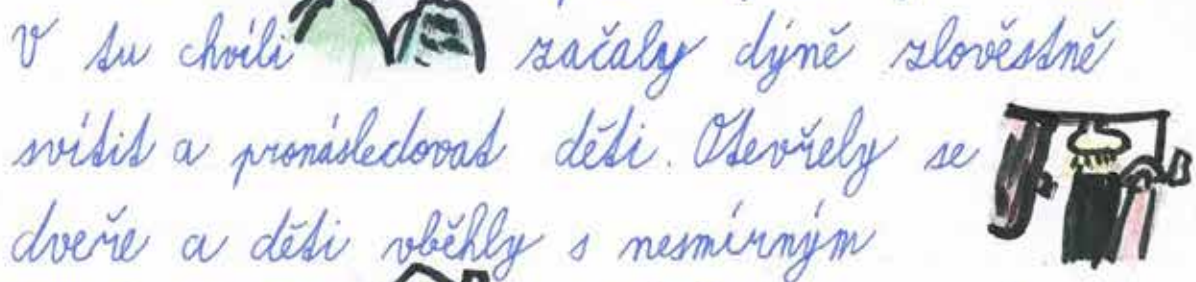 V tu chvíli začaly dýně zlověstně
svítit a pronásledovat děti. Otevřely se
dveře a děti vběhly s nesmírným